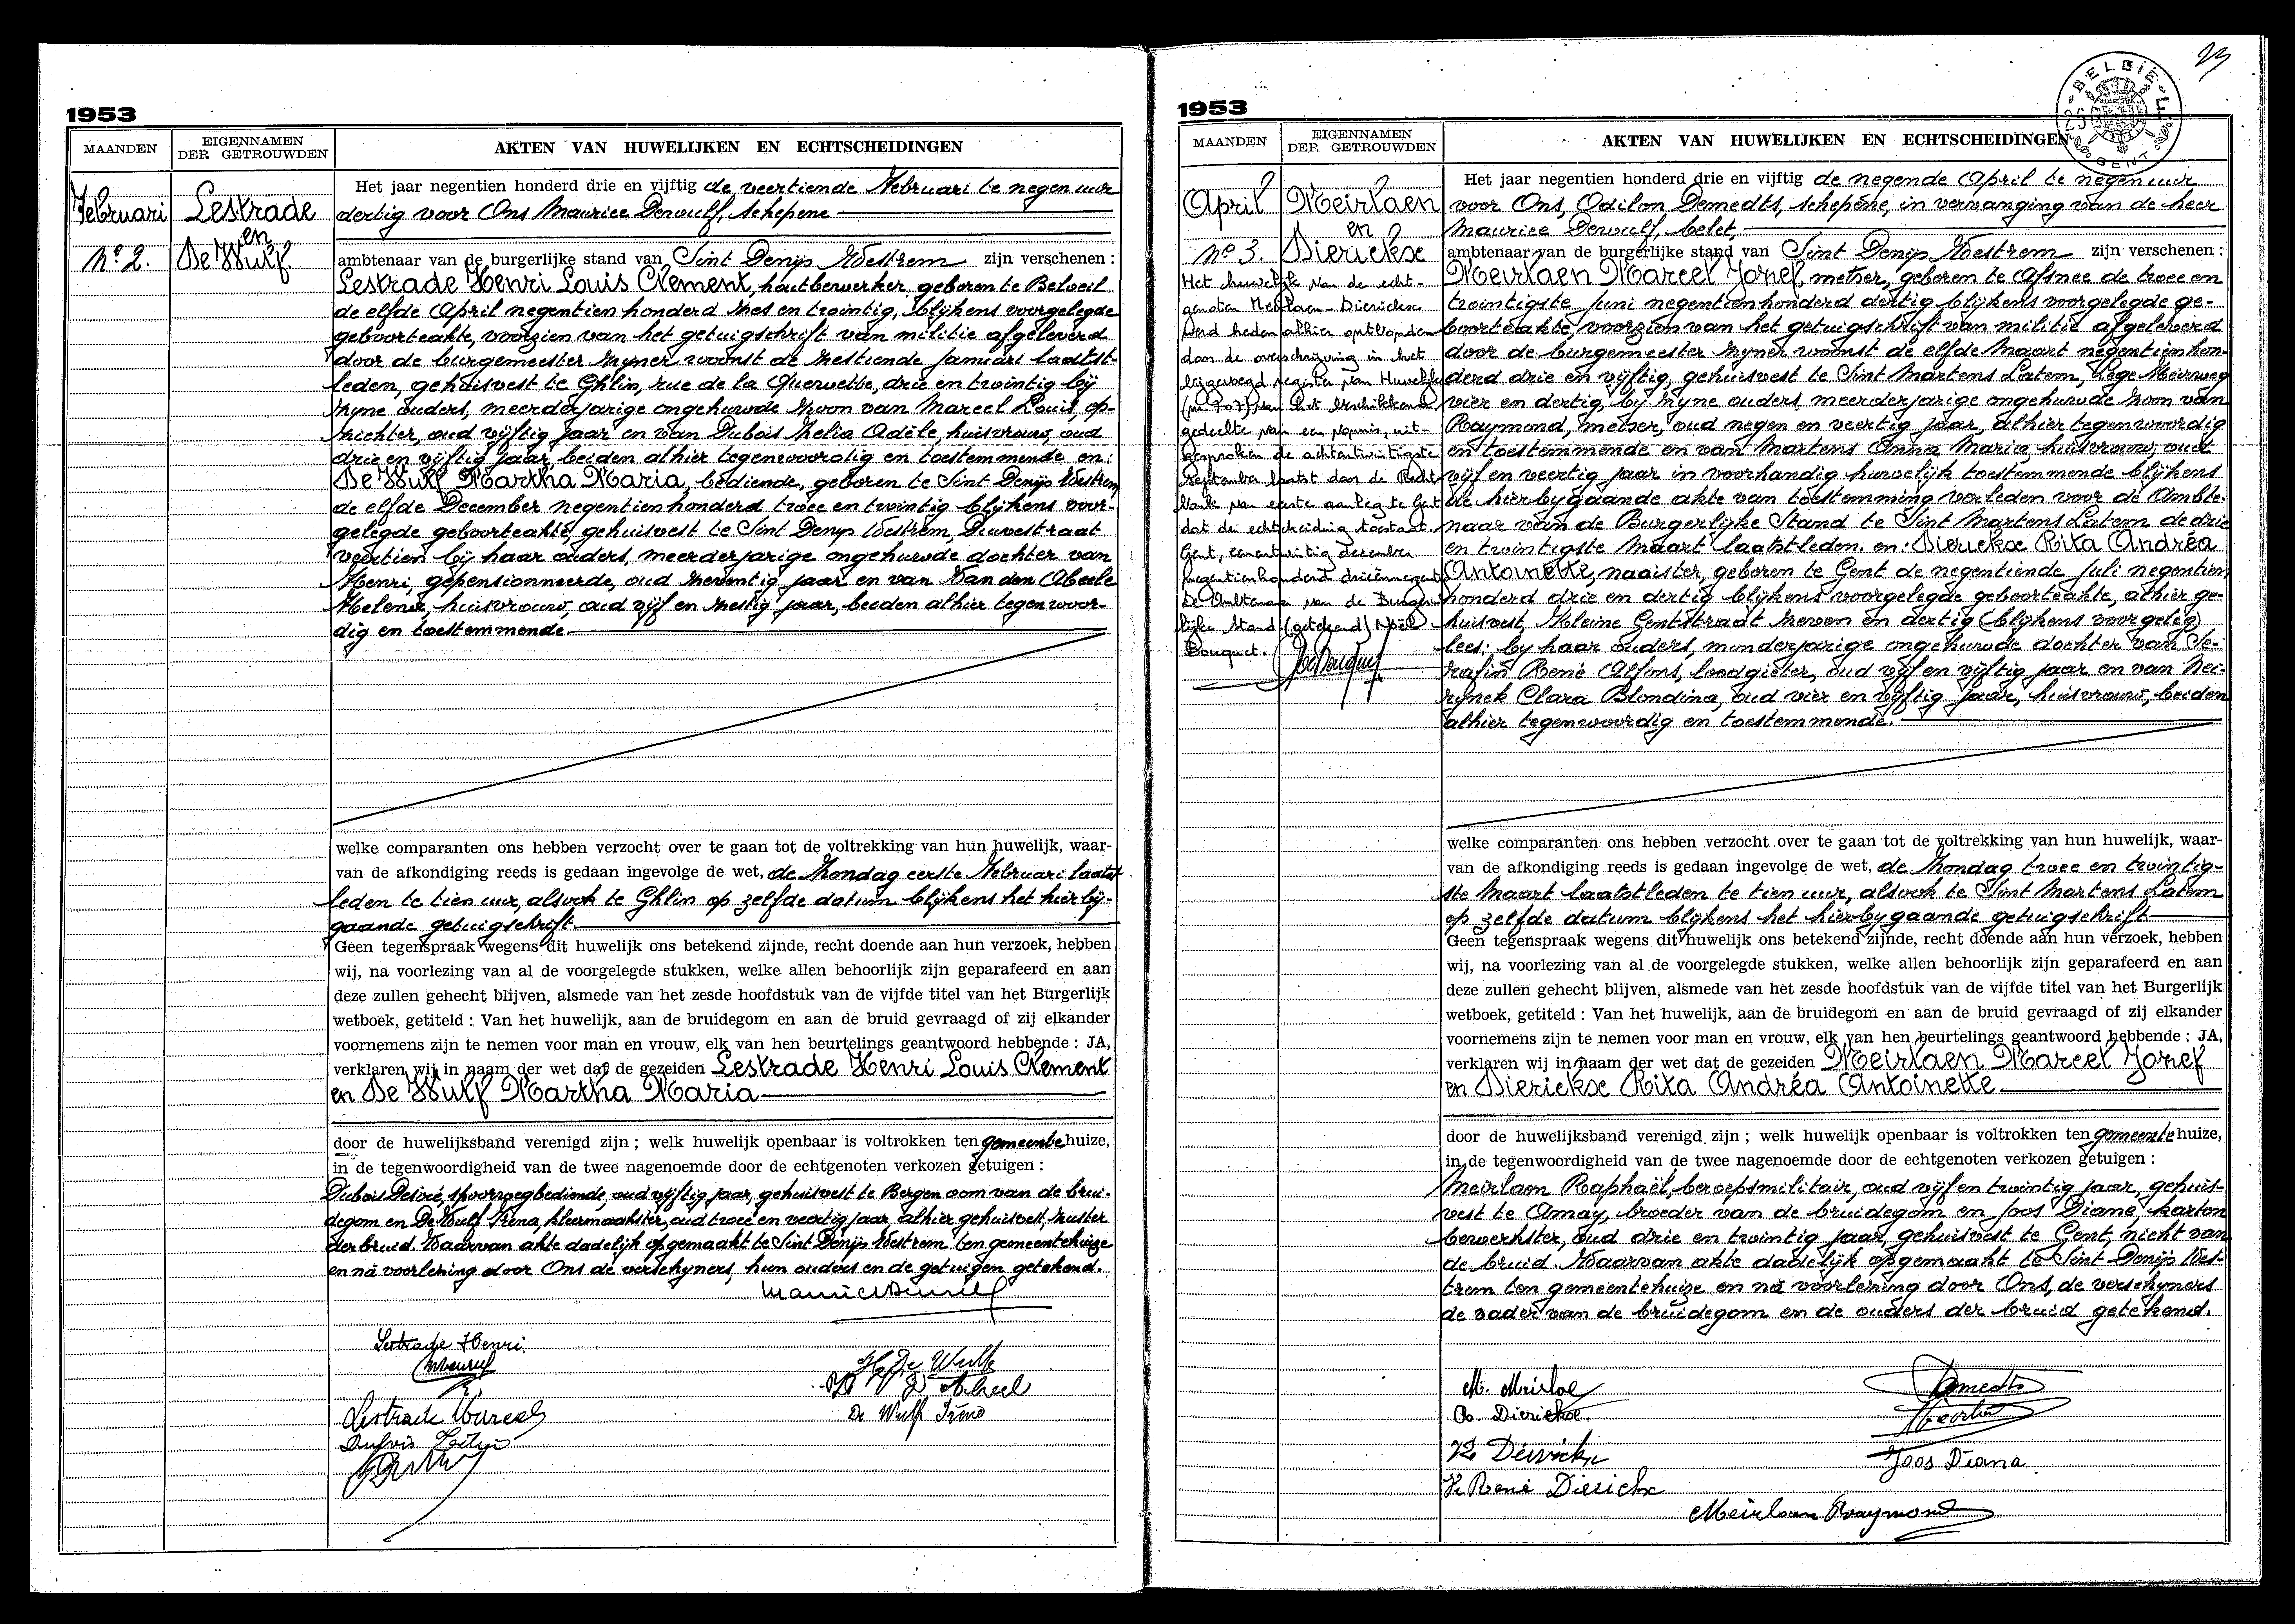 1953
MAANDEN
EIGENNAMEN
DER GETROUWDEN
AKTEN VAN HUWELIJKEN EN ECHTSCHEIDINGEN
Februari
No 2.
Lestrade
en
De Wulf
Het jaar negentien honderd drie en vijftig de veertiende Februari te negen uur
dertig voor Ons Maurice Dewulf, schepene
ambtenaar van de burgerlijke stand van Sint Denijs Westrem zijn verschenen :
Lestrade Henri Louis Clement, houtbewerker, geboren te Beloeil
de elfde April negentien honderd zes en twintig, blijkens voorgelegde
geboorteakte, voorzien van het getuigschrift van militie afgeleverd
door de burgemeester zijner woonst de zestiende januari laatst-
leden, gehuisvest te Ghlin, rue de la Querwette, drie en twintig bij
zijne ouders, meerderjarige ongehuwde zoon van Marcel Louis, op-
zichter, oud vijftig jaar en van Dubois Zelia Adèle, huisvrouw, oud
drie en vijftig jaar, beiden alhier tegenwoordig en toestemmende en:
De Wulf Martha Maria, bediende, geboren te Sint Denijs Westrem
de elfde December negentien honderd twee en twintig blijkens voor-
gelegde geboorteakte, gehuisvest te Sint Denijs Westrem, Duivestraat
veertien bij haar ouders, meerderjarige ongehuwde dochter van
Henri, gepensionneerde, oud zeventig jaar en van Van den Abeele
Helena, huisvrouw, oud vijf en zestig jaar, beiden alhier tegenwoor-
dig en toestemmende
welke comparanten ons hebben verzocht over te gaan tot de voltrekking van hun huwelijk, waar-
van de afkondiging reeds is gedaan ingevolge de wet, de Zondag eerste Februari laatst
leden te tien uur, alsook te Ghlin op zelfde datum blijkens het hierbij-
gaande getuigschrift
Geen tegenspraak wegens dit huwelijk ons betekend zijnde, recht doende aan hun verzoek, hebben
wij, na voorlezing van al de voorgelegde stukken, welke allen behoorlijk zijn geparafeerd en aan
deze zullen gehecht blijven, alsmede van het zesde hoofdstuk van de vijfde titel van het Burgerlijk
wetboek, getiteld : Van het huwelijk, aan de bruidegom en aan de bruid gevraagd of zij elkander
voornemens zijn te nemen voor man en vrouw, elk van hen beurtelings geantwoord hebbende : JA,
verklaren wij in naam der wet dat de gezeiden Lestrade Henri Louis Clement
en De Wulf Martha Maria
door de huwelijksband verenigd zijn ; welk huwelijk openbaar is voltrokken ten gemeentehuize,
in de tegenwoordigheid van de twee nagenoemde door de echtgenoten verkozen getuigen :
Dubois Desiré, spoorwegbediende, oud vijftig jaar, gehuisvest te Bergen oom van de brui-
degom en De Wulf Irena, kleermaakster, oud twee en veertig jaar, alhier gehuisvest, zuster
der bruid. Waarvan akte dadelijk opgemaakt te Sint Denijs Westrem ten gemeentehuize
en na voorlezing door Ons de verschijners, hun ouders en de getuigen getekend.
Lestrade Henri
Lestrade Marcel
De Wulf Irène
1953
MAANDEN
EIGENNAMEN
DER GETROUWDEN
AKTEN VAN HUWELIJKEN EN ECHTSCHEIDINGEN
BELGIË
GENT
April
No 3.
Meirlaen
en
Dierickse
Het huwelijk van de echt-
genoten Meirlaen-Dierickse
werd heden alhier ontbonden
door de overschrijving in het
bijgevoegd register van Huwelijken
(nr 707) van het beschikkend
gedeelte van een vonnis, uit-
gesproken de achtentwintigste
September laatst door de Recht
bank van eerste aanleg te Gent
dat de echtscheiding toestaat.
Gent, eenentwintig december
negentienhonderd drieënnegentig
De Ambtenaar van de Burger
lijke Stand (getekend) Noël
Bouquet.
Het jaar negentien honderd drie en vijftig de negende April te negen uur
voor Ons, Odilon Demedts, schepene, in vervanging van de heer
Maurice Dewulf, belet,
ambtenaar van de burgerlijke stand van Sint Denijs Westrem zijn verschenen :
Meirlaen Marcel Jozef, metser, geboren te Afsnee de twee en
twintigste juni negentienhonderd dertig blijkens voorgelegde ge-
boorteakte, voorzien van het getuigschrift van militie afgeleverd
door de burgemeester zijner woonst de elfde Maart negentienhon-
derd drie en vijftig, gehuisvest te Sint Martens Latem, Lege Meirweg
vier en dertig, bij zijne ouders, meerderjarige ongehuwde zoon van
Raymond, metser, oud negen en veertig jaar, alhier tegenwoordig
en toestemmende en van Martens Anna Maria, huisvrouw, oud
vijf en veertig jaar in voorhandig huwelijk toestemmende blijkens
de hierbijgaande akte van toestemming verleden voor de Ambte-
naar van de Burgerlijke Stand te Sint Martens Latem de drie
en twintigste Maart laatstleden. en: Dierickse Rita Andréa
Antoinette, naaister, geboren te Gent de negentiende juli negentien
honderd drie en dertig blijkens voorgelegde geboorteakte, alhier ge-
huisvest, Kleine Gentstraat zeven en dertig (blijkens voorgeleg)
lees: bij haar ouders, minderjarige ongehuwde dochter van Se-
rafin René Alfons, loodgieter, oud vijf en vijftig jaar en van Nei-
rynck Clara Blondina, oud vier en vijftig jaar, huisvrouw, beiden
alhier tegenwoordig en toestemmende.
welke comparanten ons hebben verzocht over te gaan tot de voltrekking van hun huwelijk, waar-
van de afkondiging reeds is gedaan ingevolge de wet, de Zondag twee en twintig-
ste Maart laatstleden te tien uur, alsook te Sint Martens Latem
op zelfde datum blijkens het hierbijgaande getuigschrift
Geen tegenspraak wegens dit huwelijk ons betekend zijnde, recht doende aan hun verzoek, hebben
wij, na voorlezing van al de voorgelegde stukken, welke allen behoorlijk zijn geparafeerd en aan
deze zullen gehecht blijven, alsmede van het zesde hoofdstuk van de vijfde titel van het Burgerlijk
wetboek, getiteld : Van het huwelijk, aan de bruidegom en aan de bruid gevraagd of zij elkander
voornemens zijn te nemen voor man en vrouw, elk van hen beurtelings geantwoord hebbende : JA,
verklaren wij in naam der wet dat de gezeiden Meirlaen Marcel Jozef
en Dierickse Rita Andréa Antoinette
door de huwelijksband verenigd zijn ; welk huwelijk openbaar is voltrokken ten gemeentehuize,
in de tegenwoordigheid van de twee nagenoemde door de echtgenoten verkozen getuigen :
Meirlaen Raphaël, beroepsmilitair, oud vijf en twintig jaar, gehuis-
vest te Amay, broeder van de bruidegom en Joos Diane, karton
bewerkster, oud drie en twintig jaar, gehuisvest te Gent, nicht van
de bruid. Waarvan akte dadelijk opgemaakt te Sint Denijs Wes-
trem ten gemeentehuize en na voorlezing door Ons, de verschijners
de vader van de bruidegom en de ouders der bruid getekend.
R. Dierickse.
Demedts
Joos Diana.
René Dierickx
Meirlaen Raymond